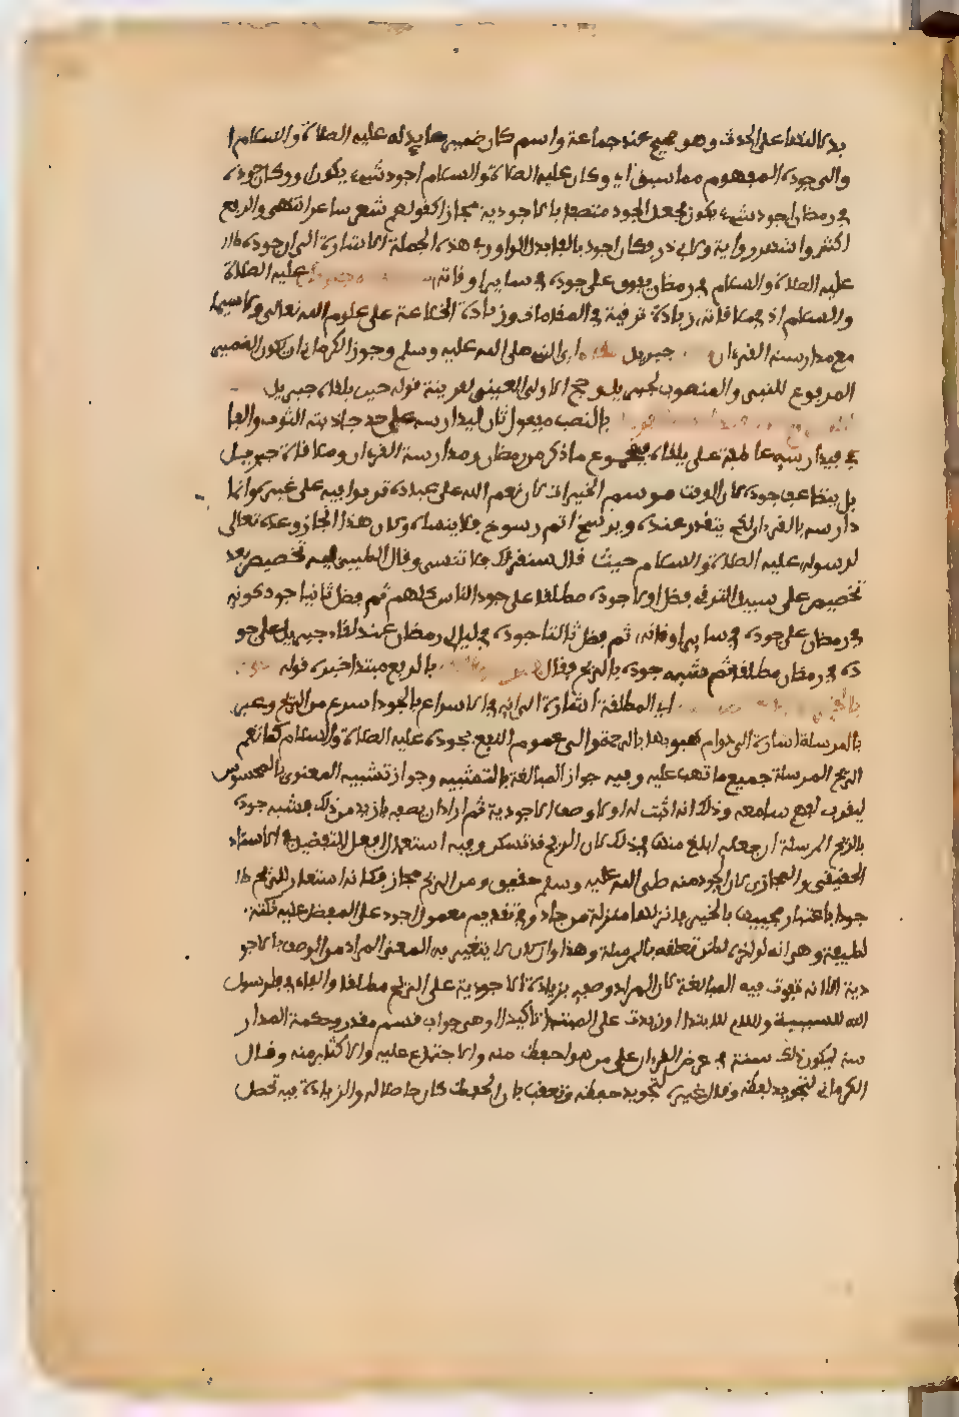 بدلالته على الحدث وهو صحيح عند جماعة واسم كان ضمير عايد له عليه الصلاة والسلام ا
والى جوده المفهوم مما سبق اي وكان عليه الصلاة والسلام اجود شيء يكون او وكان جوده
في رمضان اجود شيء يكون فجعل الجود متصفا بالاجودية مجازا كقولهم شعر شاعر انتهى والرفع
اكثر واشهر رواية ولابي ذر فكان اجود بالفاء بدل الواو وفي هذه الجملة الاشارة الى ان جوده
عليه الصلاة والسلام في رمضان يفوق على جوده في ساير اوقاته عليه الصلاة
والسلام اذ في ملاقاته زيادة ترقية في المقامات وزيادة اطلاعه على علوم الله تعالى ولا سيما
مع مدارسة القرءان جبريل اي النبي صلى الله عليه وسلم وجوز الكرماني ان يكون الضمير
المرفوع للنبي والمنصوب لجبريل ورجح الاول العيني لقرينة قوله حين يلقاه جبريل
بالنصب مفعول ثان ليدارسه على حد جاذبته الثوب والفا
في فيدارسه عاطفة على يلقاه فبمجموع ما ذكر من رمضان ومدارسة القرءان وملاقاة جبريل
يتضاعف جوده لان الوقت موسم الخيرات لان نعم الله على عباده تربوا فيه على غيره وانما
دارسه بالقرءان لكي يتقرر عنده ويرسخ اتم رسوخ فلا ينساه وكان هذا انجاز وعده تعالى
لرسوله عليه الصلاة والسلام حيث قال سنقرئك فلا تنسى وقال الطيبي فيه تخصيص بعد
تخصيص على سبيل الترقي فضل اولا جوده مطلقا على جود الناس كلهم ثم فضل ثانيا جود كونه
في رمضان على جوده في ساير اوقاته ثم فضل ثالثا جوده في ليالي رمضان عند لقاء جبريل على جو
ده في رمضان مطلقا ثم شبه جوده بالريح فقال بالرفع مبتدا خبره قوله
اي المطلقة اشارة الى انه في الاسراع بالجود اسرع من الريح وعبر
بالمرسلة اشارة الى دوام هبوبها بالرحمة والى عموم النفع بجوده عليه الصلاة والسلام كما تعم
الريح المرسلة جميع ما تهب عليه وفيه جواز المبالغة بالتشبيه وجواز تشبيه المعنوي بالمحسوس
ليقرب لفهم سامعه وذلك انه اثبت له اولا وصف الاجودية ثم اراد ان يصفه بازيد من ذلك فشبه جوده
بالريح المرسلة بل جعله ابلغ منها في ذلك لان الريح قد تسكن وفيه استعمال افعل التفضيل في الاسناد
الحقيقي والمجازي لان الجود منه صلى الله عليه وسلم حقيقي ومن الريح مجاز فكانه استعار للريح
جودا باعتبار مجييها بالخير فانزلها منزلة من جاد وفي تقديم معمول اجود على المفضل عليه نكتة
لطيفة وهي انه لو اخره لظن تعلقه بالمرسلة وهذا وان كان لا يتغير به المعنى المراد من الوصف بالاجو
دية الا انه تفوت فيه المبالغة لان المراد وصفه بزيادة الاجودية على الريح مطلقا والفاء في فلرسول
الله للسببية واللام للابتدا وزيدت على المبتدا تاكيدا او هي جواب قسم مقدر وحكمة المدار
سة ليكون ذلك سنة في عرض القرءان على من هو احفظ منه والاجتماع عليه والاكثار منه وقال
الكرماني لتجويد لفظه وقال غيره لتجويد حفظه وتعقب بان الحفظ كان حاصلا له والزيادة فيه تحصل